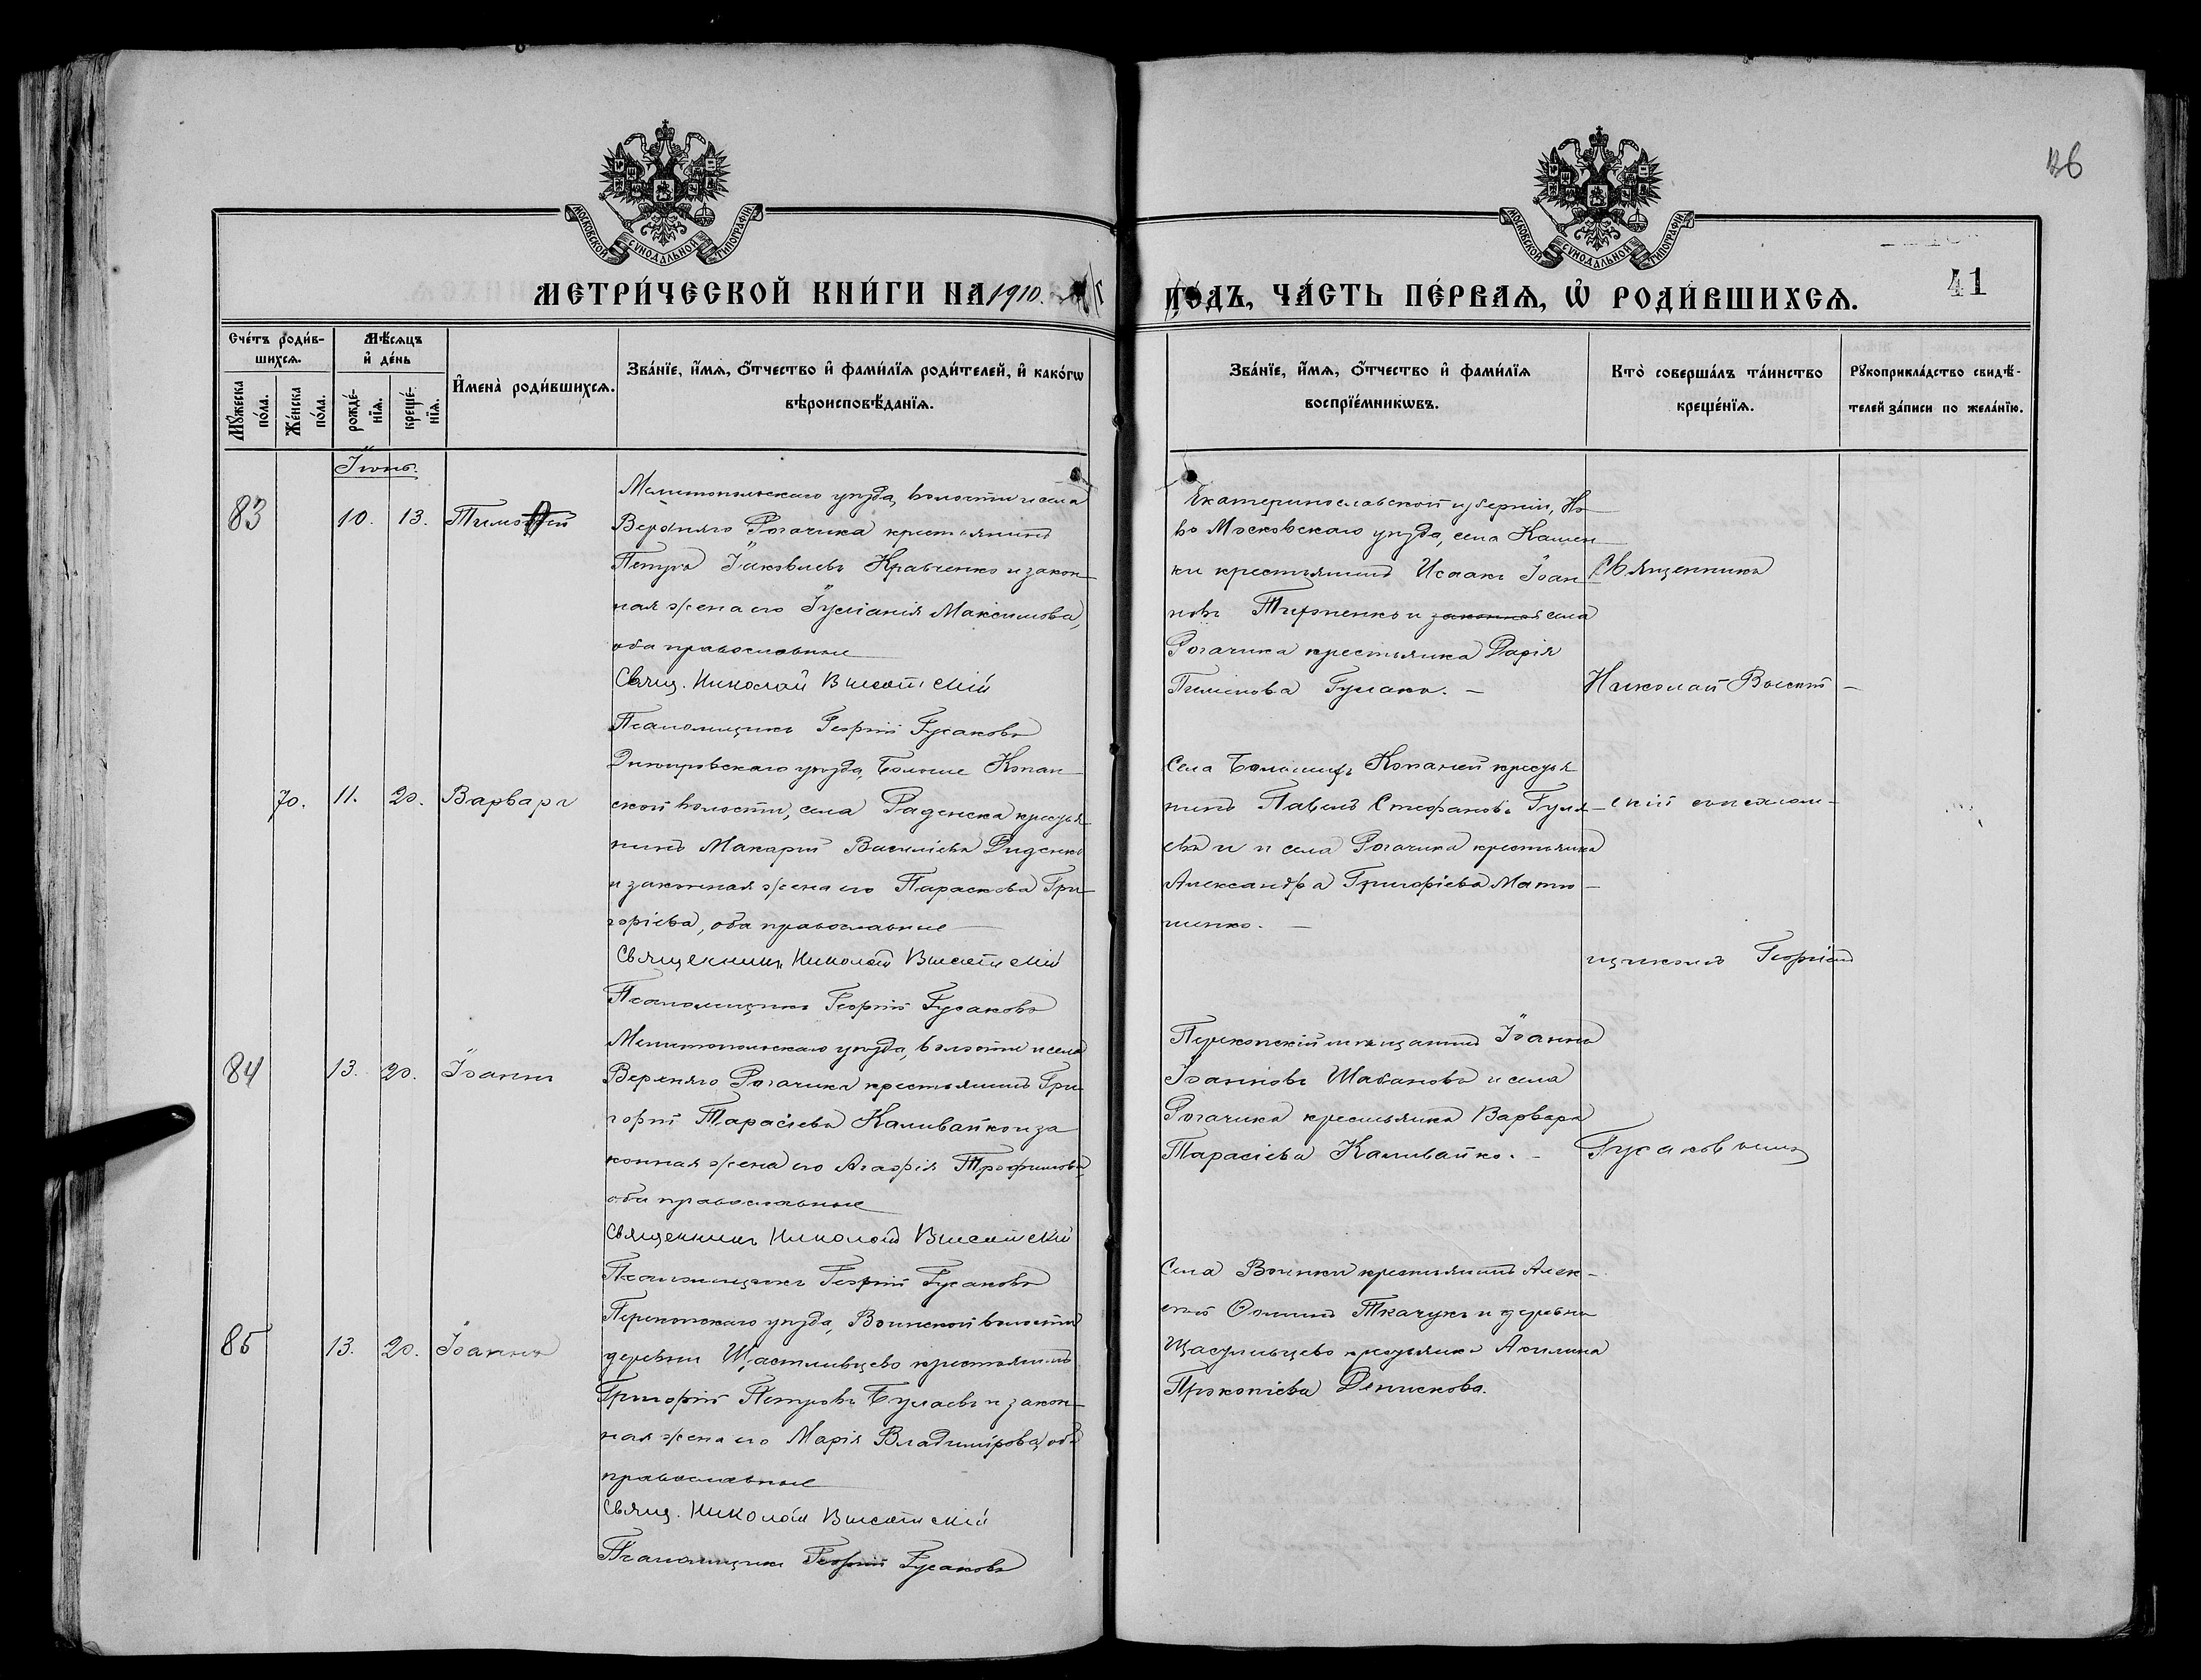 136
МОСКОВСКОЙ СѴНОДАЛЬНОЙ ТИПОГРАФІИ
МОСКОВСКОЙ СѴНОДАЛЬНОЙ ТИПОГРАФІИ
МЕТРИ́ЧЕСКОЙ КНИ́ГИ НА 1910. г
ГОДЪ, ЧА́СТЬ ПЕ́РВАѦ, Ѡ҆ РОДИ́ВШИХСѦ.
41
Сче́тъ роди́в-
шихсѧ.
Мꙋ́жеска по́ла.
Же́нска по́ла.
Мѣ́сѧцъ
и҆ де́нь
рожде́-
нїѧ.
креще́-
нїѧ.
И҆мена̀ роди́вшихсѧ.
Зва́нїе, и҆́мѧ, ѻ҆́тчество и҆ фами́лїѧ роди́телей, и҆ како́гѡ
вѣроисповѣ́данїѧ.
Зва́нїе, и҆́мѧ, ѻ҆́тчество и҆ фами́лїѧ
воспрїе́мникѡвъ.
Кто̀ соверша́лъ та́инство
креще́нїѧ.
Рꙋкоприкла́дство свидѣ́-
телей за́писи по жела́нїю.
Іюнь.
83
10.
13.
Тимоѳей
Мелитопольскаго уѣзда, волости и села
Верхняго Рогачика крестьянинъ
Петръ Іаковлевъ Кравченко и закон-
ная жена его Іуліанія Максимова,
оба православные
Свящ. Николай Высотскій
Псаломщикъ Георгій Гусаковъ
Екатеринославской губерніи, Но-
во Московскаго уѣзда, села Камен-
ки крестьянинъ Исаакъ Іоан-
новъ и законная села
Рогачика крестьянка Дарія
Пименова
Священникъ
Николай Высот-
70.
11.
20.
Варвара
Днѣпровскаго уѣзда, Больше Копан-
ской волости, села Раденска крестья-
нинъ Макарій Василіевъ Диденко
и законная жена его Параскева Гри-
горіева, оба православные
Священникъ Николай Высотскій
Псаломщикъ Георгій Гусаковъ
Села Большихъ Копаней крестья-
нинъ Павелъ Стефановъ Гуля-
евъ и и села Рогачика крестьянка
Александра Григоріева Матю-
шенко.
скій съ псалом-
щикомъ Георгіемъ
84
13.
20.
Іоаннъ
Мелитопольскаго уѣзда, волости и села
Верхняго Рогачика крестьянинъ Гри-
горій Тарасіевъ Наливайко и за
конная жена его Агафія Трофимова,
оба православные
Священникъ Николай Высотскій
Псаломщикъ Георгій Гусаковъ
Перекопскій мѣщанинъ Іоаннъ
Іоанновъ Шабановъ и села
Рогачика крестьянка Варвара
Тарасіева Наливайко.
Гусаковымъ
85
13.
20.
Іоаннъ
Перекопскаго уѣзда, Воинской волости
деревни Щастливцево крестьянинъ
Григорій Петровъ Булаевъ и закон-
ная жена его Марія Владимірова, оба
православные
Свящ. Николай Высотскій
Псаломщикъ Георгій Гусаковъ
Села Воинки крестьянинъ Алек-
сѣй Ѳоминъ Ткачукъ и деревни
Щастливцево крестьянка Акилина
Прокопіева Денискова.